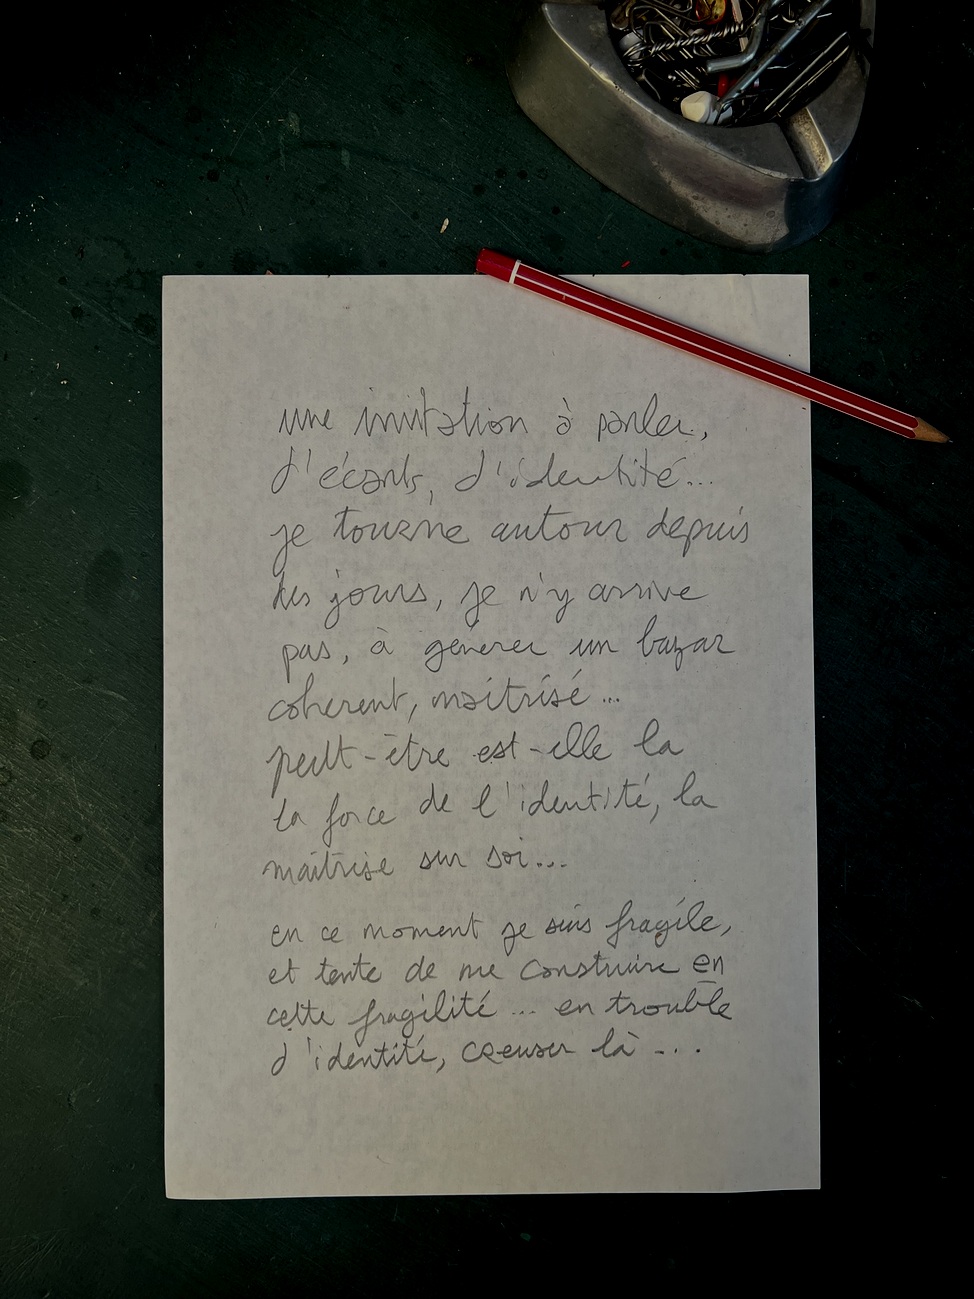 une invitation à parler,
d'écarts, d'identité...
je tourne autour depuis
des jours, je n'y arrive
pas, à générer un bazar
coherent, maîtrisé...
peut-être est-elle la
la force de l'identité, la
maîtrise sur soi...
en ce moment je suis fragile,
et tente de me construire en
cette fragilité... en trouble
d'identité, creuser là...